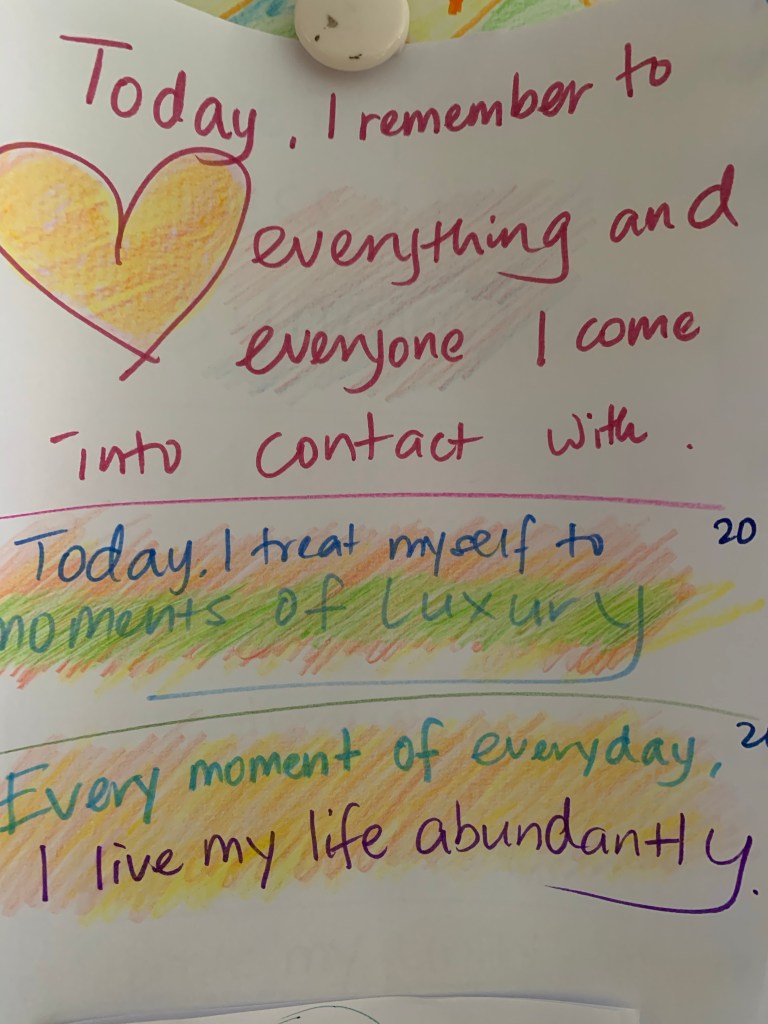 Today, I remember to
everything and
everyone I come
into contact with.
Today. I treat myself to
20
moments of Luxury
Every moment of everyday,
I live my life abundantly.